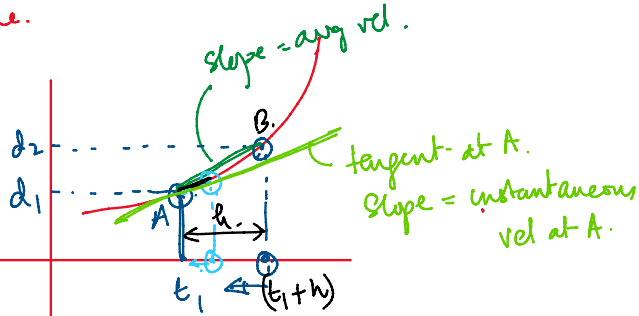 e.
slope = avg vel.
B.
d2
tangent at A.
d1
A
slope = instantaneous
h.
vel at A.
t1
(t1+h)